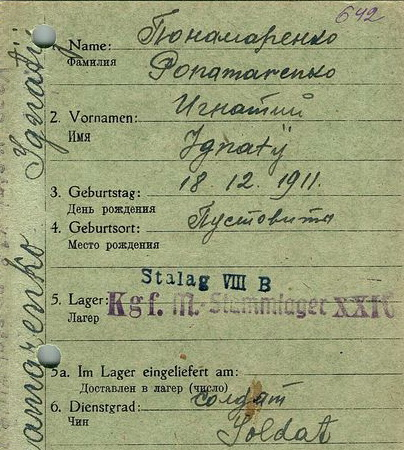 642
Name: Понамаренко
Фамилия Ponamarenko
2. Vornamen: Игнатий
Имя Ignatij
3. Geburtstag: 18. 12. 1911.
День рождения
4. Geburtsort: Пустовита
Место рождения
Stalag VIII B
5. Lager: Kgf. M.-Stammlager
Лагерь
5a. Im Lager eingeliefert am:
Доставлен в лагерь (число)
6. Dienstgrad: солдат
Чин Soldat
amarenko Ignatij